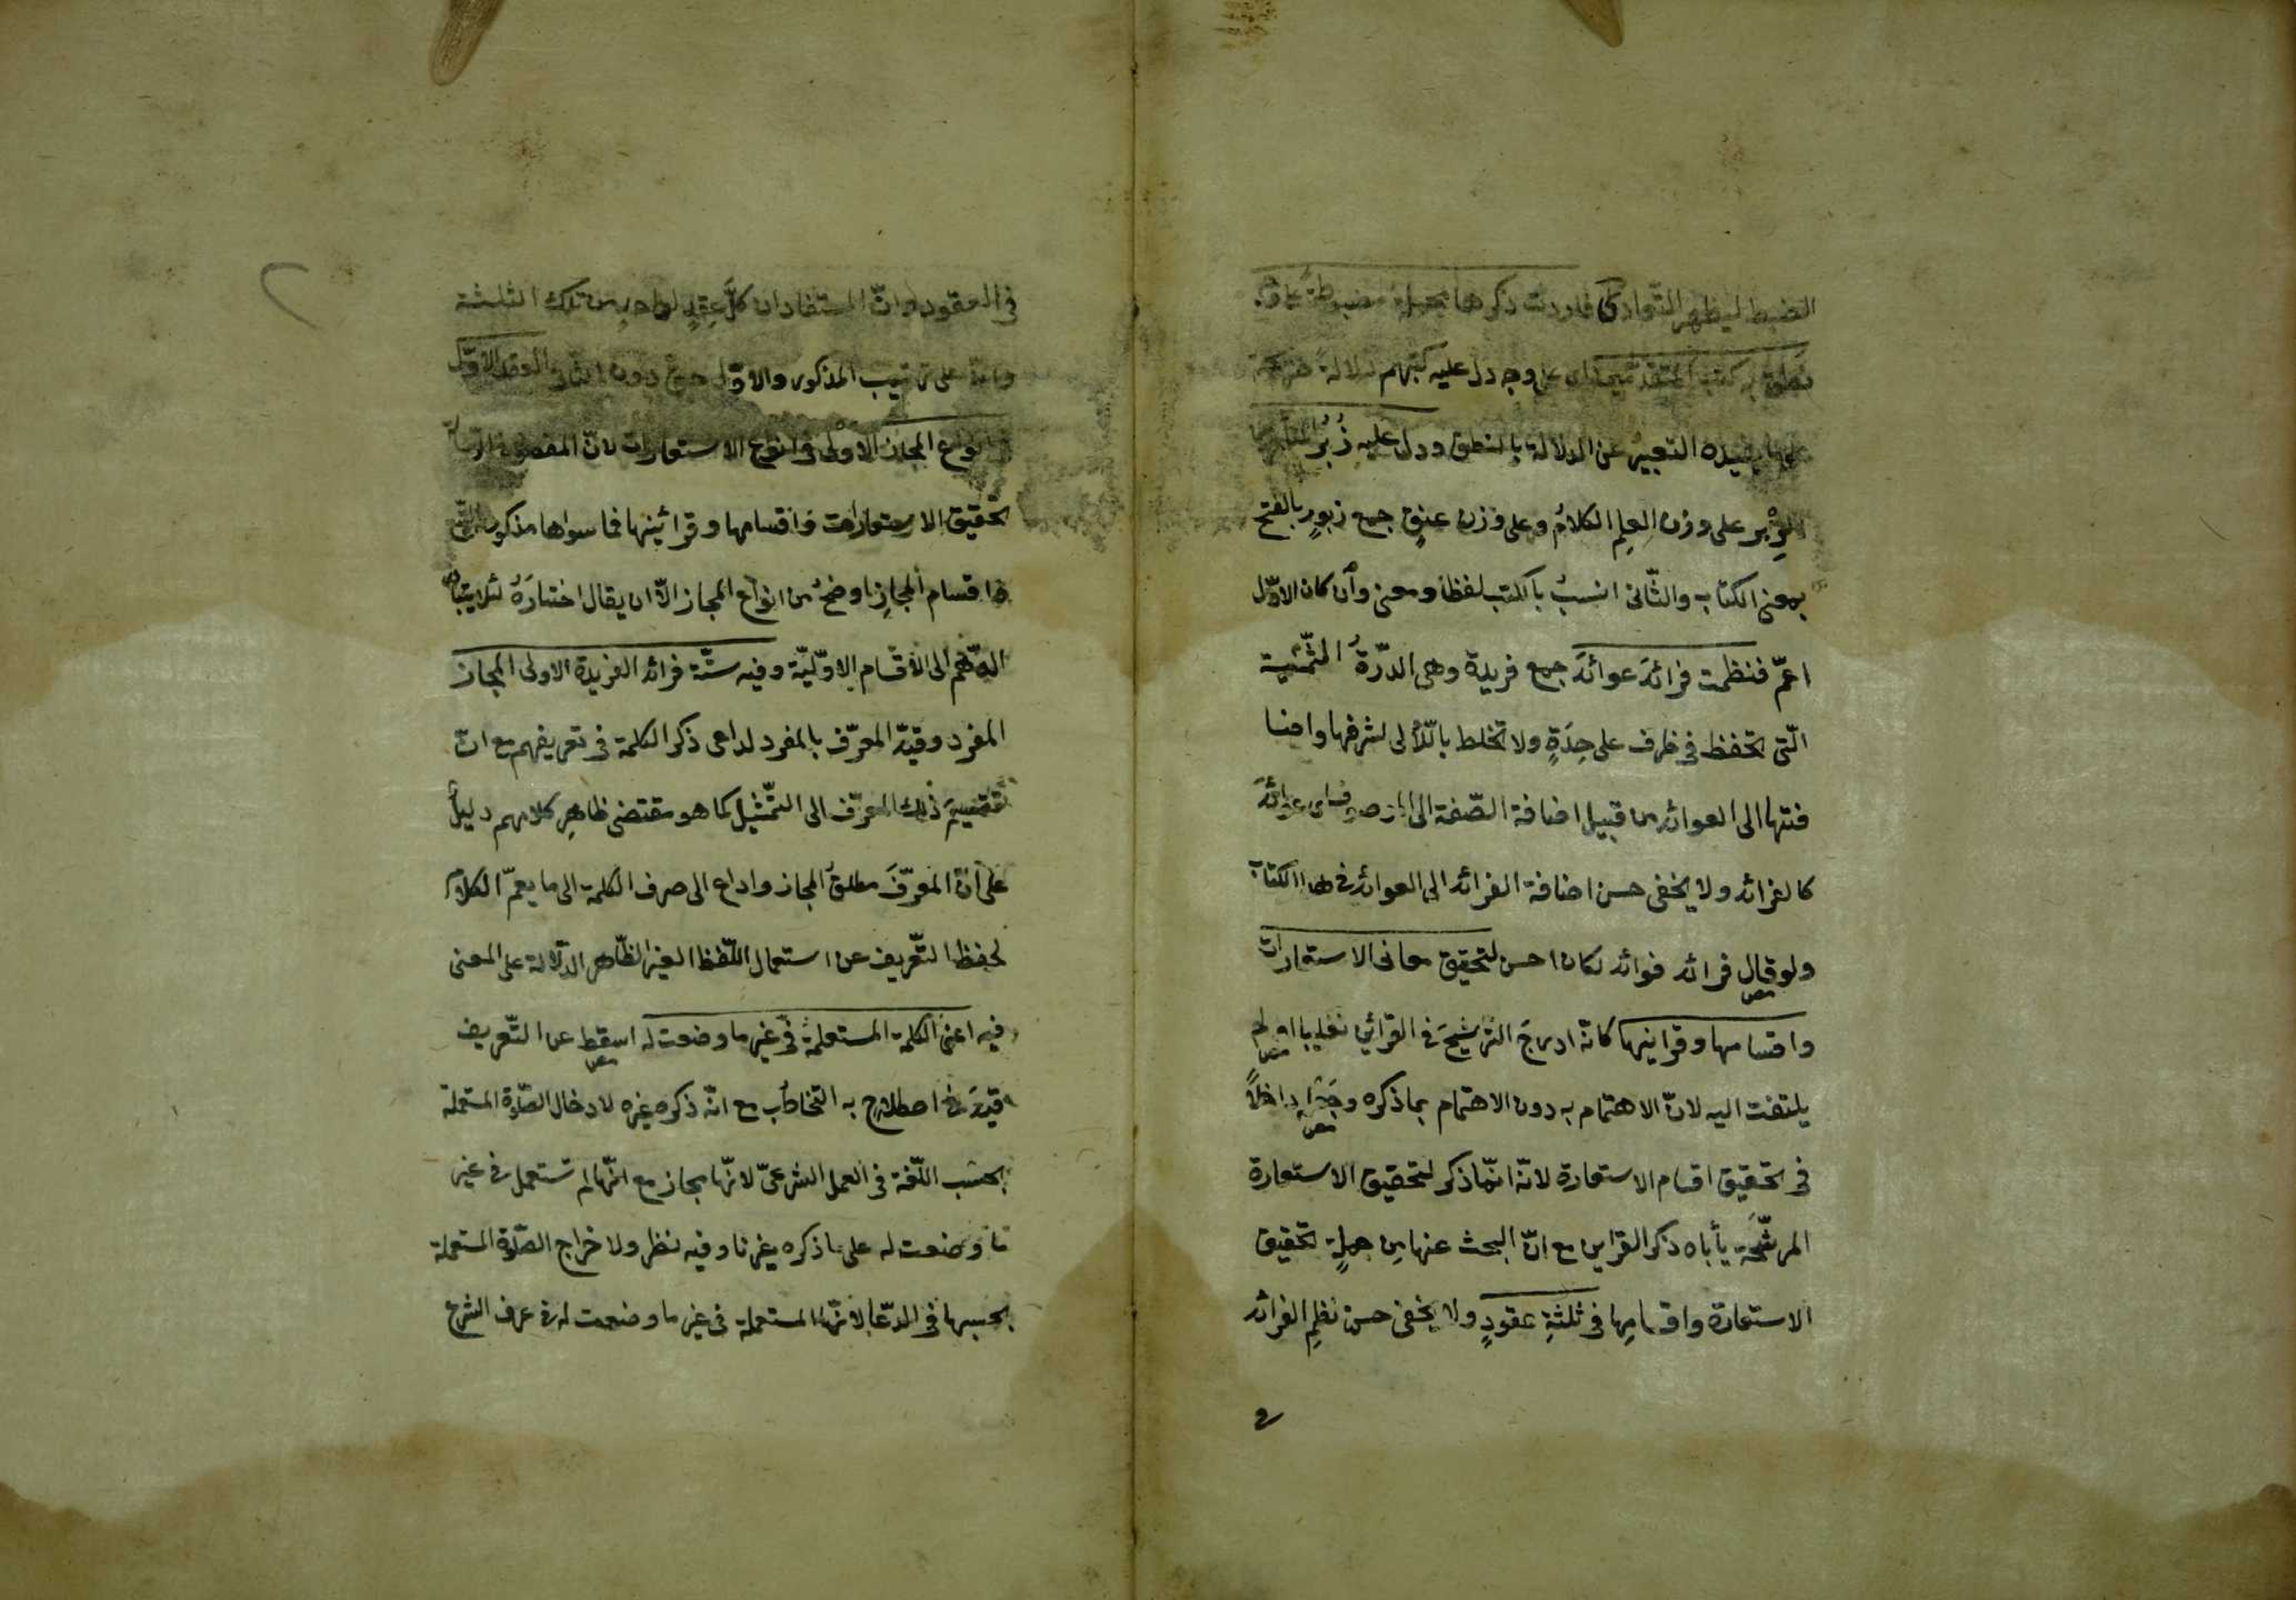 الضبط ليظهر التّعادل فاردت ذكرها مجملة مضبوطة على وجه
نطق به كتب المتقدمين اى على وجه دل عليه كتبهم دلالة صريحة
على ما يفيده التعبير عن الدلالة بالنطق ودل عليه زُبُر
الزِبْر على وزن العِلم الكلامُ وعلى وزن عنق جمع زبورٍ بالفتح
بمعنى الكتاب والثّانى انسبُ بالكتب لفظا ومعنى وان كان الاوّل
اعمّ فنظمت فرائدَ عوائدَ جمع فريدة وهى الدرّةُ الثّمينة
الّتى تحفظ فى ظرف على حِدَةٍ ولا تخلط باللّألى لشرفها واضا
فتها الى العوائد من قبيل اضافة الصّفة الى الموصوف اى عوائدَ
كالفرائد ولا يخفى حسن اضافة الفرائد الى العوائد فى هذا الكتاب
ولو قال فرائد فوائد لكان احسن لتحقيق معانى الاستعارات
واقسامها وقرائنها كانّه ادرجَ الترشيحَ فى القرائن تغليبا او لم
يلتفت اليه لانّ الاهتمام به دون الاهتمام بما ذكره وجَعْله داخلاً
فى تحقيق اقسام الاستعارة لانّه انّما ذكر لتحقيق الاستعارة
المرشّحة يأباه ذكر القراين مع انّ البحث عنها من جملة تحقيق
الاستعارة واقسامِها فى ثلثةِ عقودٍ ولا يخفى حسن نظمِ الفرائد
فى
فى العقود وانّ المستفاد ان كلَّ عِقدٍ لواحدٍ من تلك الثلثة
على ترتيب المذكور والاوّل دون العقد الاوّل
فى انواع المجاز الاولى فى انواع الاستعارات لانّ المقصود
تحقيق الاستعارات واقسامها وقرائنها فما سواها مذكور
اقسام المجازِ اوضحُ من انواع المجاز الّا ان يقال اختارَهُ لئلا يتبادر
الوهم الى الاقسام الاوّليّة وفيه ستّة فرائد الفريدة الاولى المجاز
المفرد وقيّد المعرّف بالمفرد لداعى ذكر الكلمة فى تعريفهم مع انّ
تقسيمَ ذلك المعرّف الى التّمثيل كما هو مقتضى ظاهرِ كلامهم دليلٌ
على انّ المعرّفَ مطلقُ المجاز وداعٍ الى صرف الكلمة الى ما يعمّ الكلامَ
لحفظ التّعريف عن استعمال اللّفظ الغير الظّاهر الدّلالة على المعنى
فيه اعنى الكلمة المستعملة فى غير ما وضعت له اسقط عن التّعريف
قيدَ فى اصطلاح به التخاطُب مع انّه ذكره غيره لادخال الصّلوة المستعملة
بحسَب اللّغة فى العمل الشرعىّ لانّها مجاز مع انّها لم تستعمل فى غير
ما وضعت له على ما ذكره غيرنا وفيه نظر ولاخراج الصّلوة المستعملة
بحسبها فى الدّعاء لانّها المستعملة فى غير ما وضعت له فى عرف الشرع